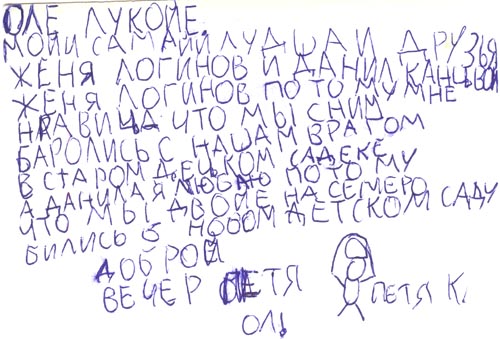 ОЛЕ ЛУКОЙЕ.
МОЙИ САМАЙИ ЛУДШАИ ДРУЗЬЯ
ЖЕНЯ ЛОГИНОВ И ДАНИЛ
ЖЕНЯ ЛОГИНОВ ПОТОМУ МНЕ
НРАВИЦА ЧТО МЫ СНИМ
БАРОЛИСЬ С НАШАМ ВРАГОМ
В СТАРОМ ДЕЦКОМ САДЕКЕ
А ДАНИЛА Я ЛЮБЛЮ ПОТО
ЧТО МЫ ДВОЙЕ НА СЕМЕРО
БИЛИСЬ В НОВОМ ДЕТСКОМ САДУ
ДОБРОЙ
ВЕЧЕР ПЕТЯ
ОЛ!
ПЕТЯ К.